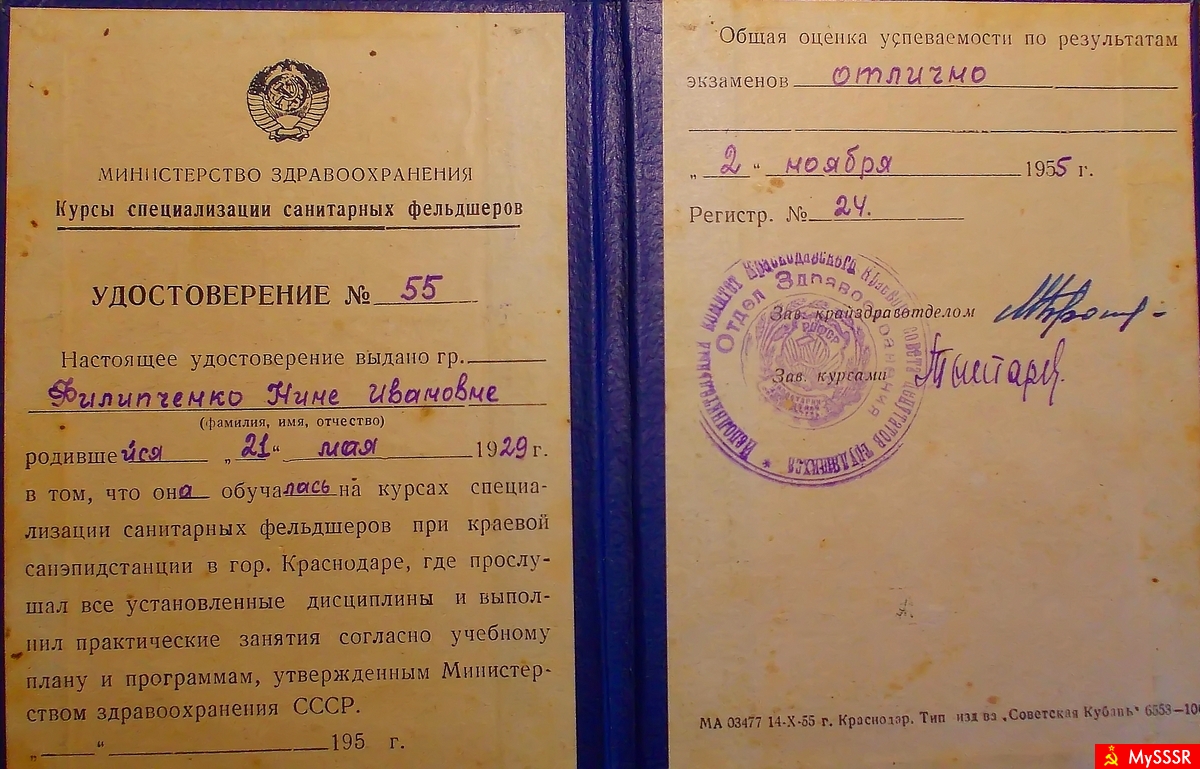 МИНИСТЕРСТВО ЗДРАВООХРАНЕНИЯ
Курсы специализации санитарных фельдшеров
УДОСТОВЕРЕНИЕ № 55
Настоящее удостоверение выдано гр.
Филипченко Нине Ивановне
(фамилия, имя, отчество)
родившейся „21“ мая 1929 г.
в том, что она обучалась на курсах специа-
лизации санитарных фельдшеров при краевой
санэпидстанции в гор. Краснодаре, где прослу-
шал все установленные дисциплины и выпол-
нил практические занятия согласно учебному
плану и программам, утвержденным Министер-
ством здравоохранения СССР.
„ “ 195 г.
Общая оценка успеваемости по результатам
экзаменов отлично
„2“ ноября 1955 г.
Регистр. № 24.
Исполнительный комитет Краснодарского краевого совета депутатов трудящихся *
Отдел Здравоохранения
РСФСР
Зав. крайздравотделом
Зав. курсами
МА 03477 14-X-55 г. Краснодар. Тип изд ва „Советская Кубань“ 6553—100
MySSSR